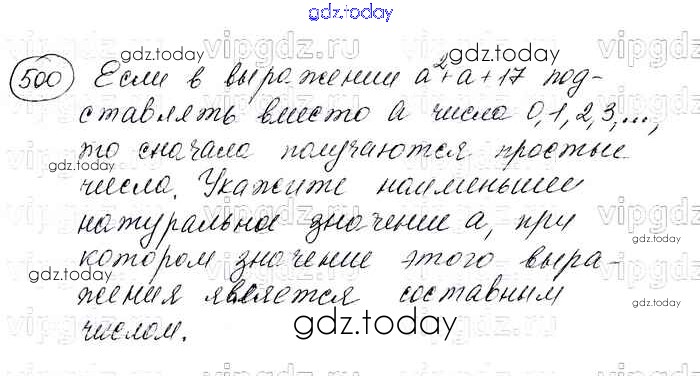 gdz.today
500 Если в выражении a²+a+17 под-
ставлять вместо a числа 0,1,2,3,...,
то сначала получаются простые
числа. Укажите наименьшее
натуральное значение a, при
котором значение этого выра-
жения является составным
числом.
gdz.today
gdz.today
gdz.today
gdz.today
gdz.today
gdz.today
gdz.today
vipgdz.ru